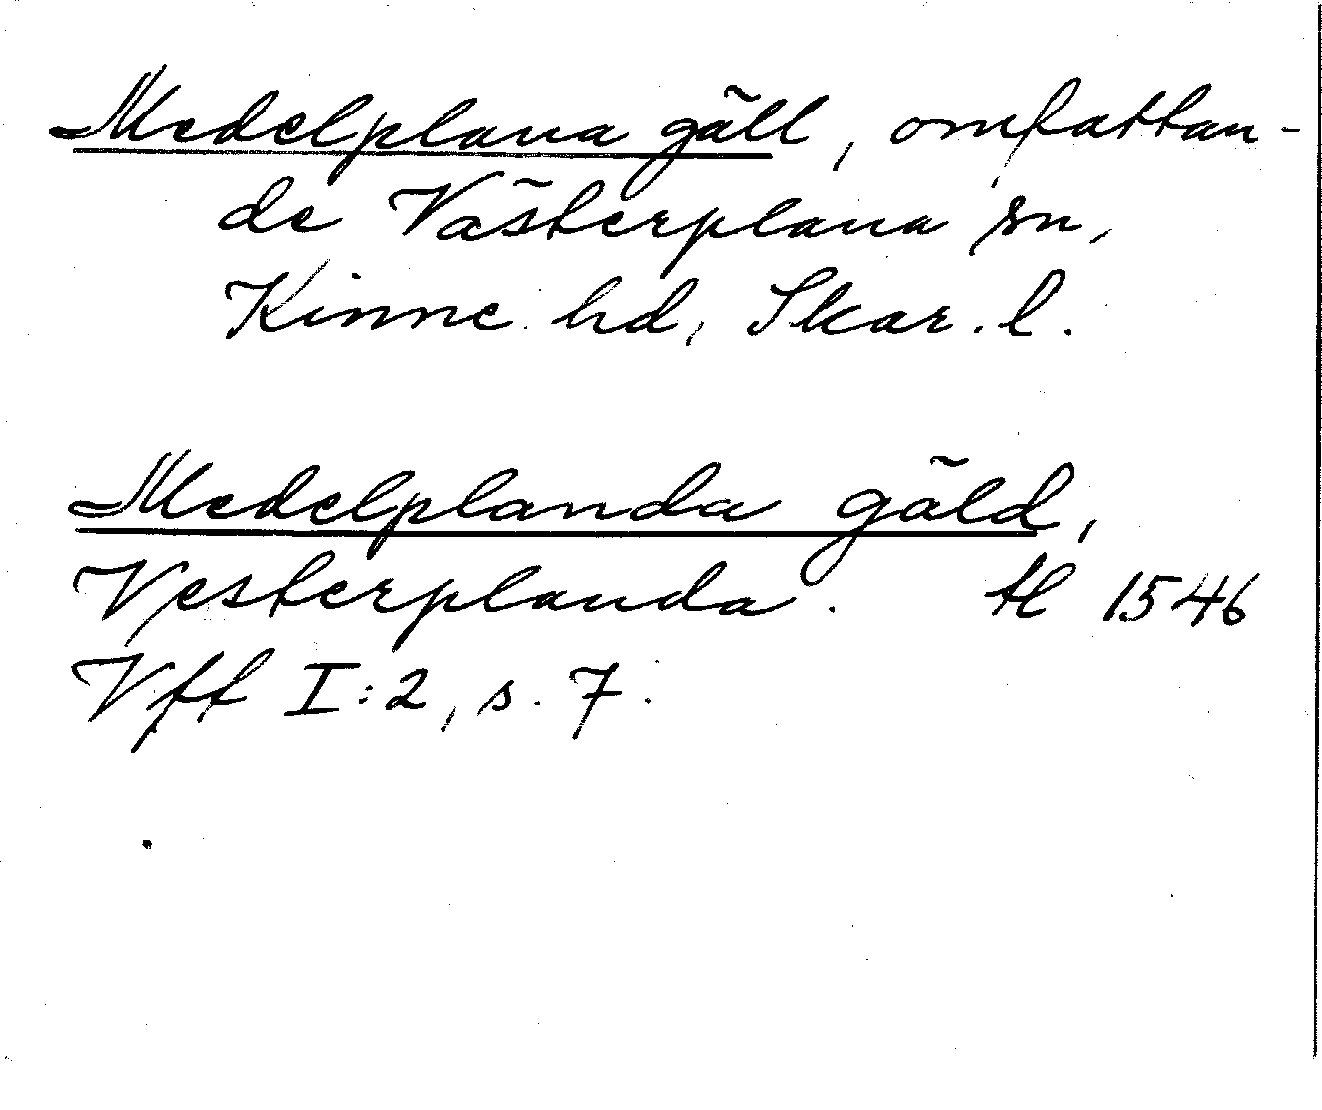 Medelplana gäll, omfattan-
de Västerplana sn,
Kinne hd, Skar. l.
Medelplanda gäld,
Vesterplanda. tl 1546
Vff I:2, s. 7.